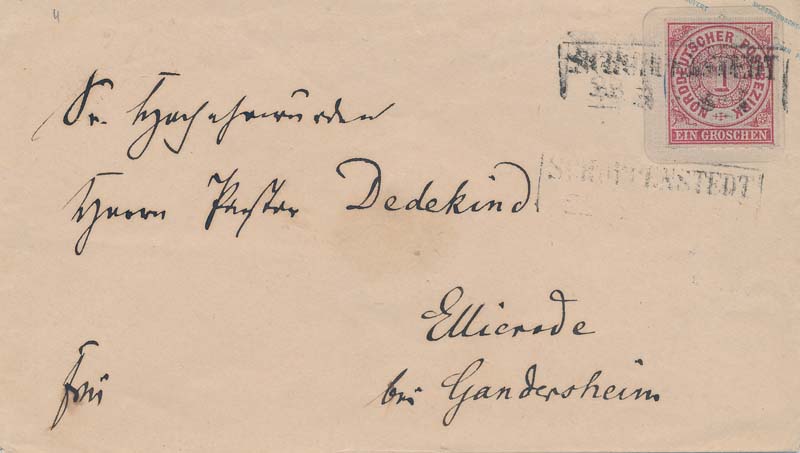 4
NORDDEUTSCHER POSTBEZIRK
1
EIN GROSCHEN
SCHÖPPENSTEDT
SCHÖPPENSTEDT
Sr. Hochehrwürden
Herrn Pastor Dedekind
Ellierode
frei
bei Gandersheim